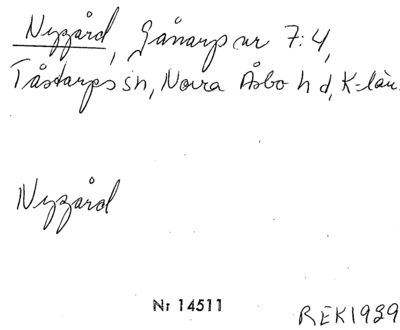 Nygård, Gånarp nr 7:4,
Tåstarps sn, Norra Åsbo hd, K-län.
Nygård
Nr 14511
REK1929